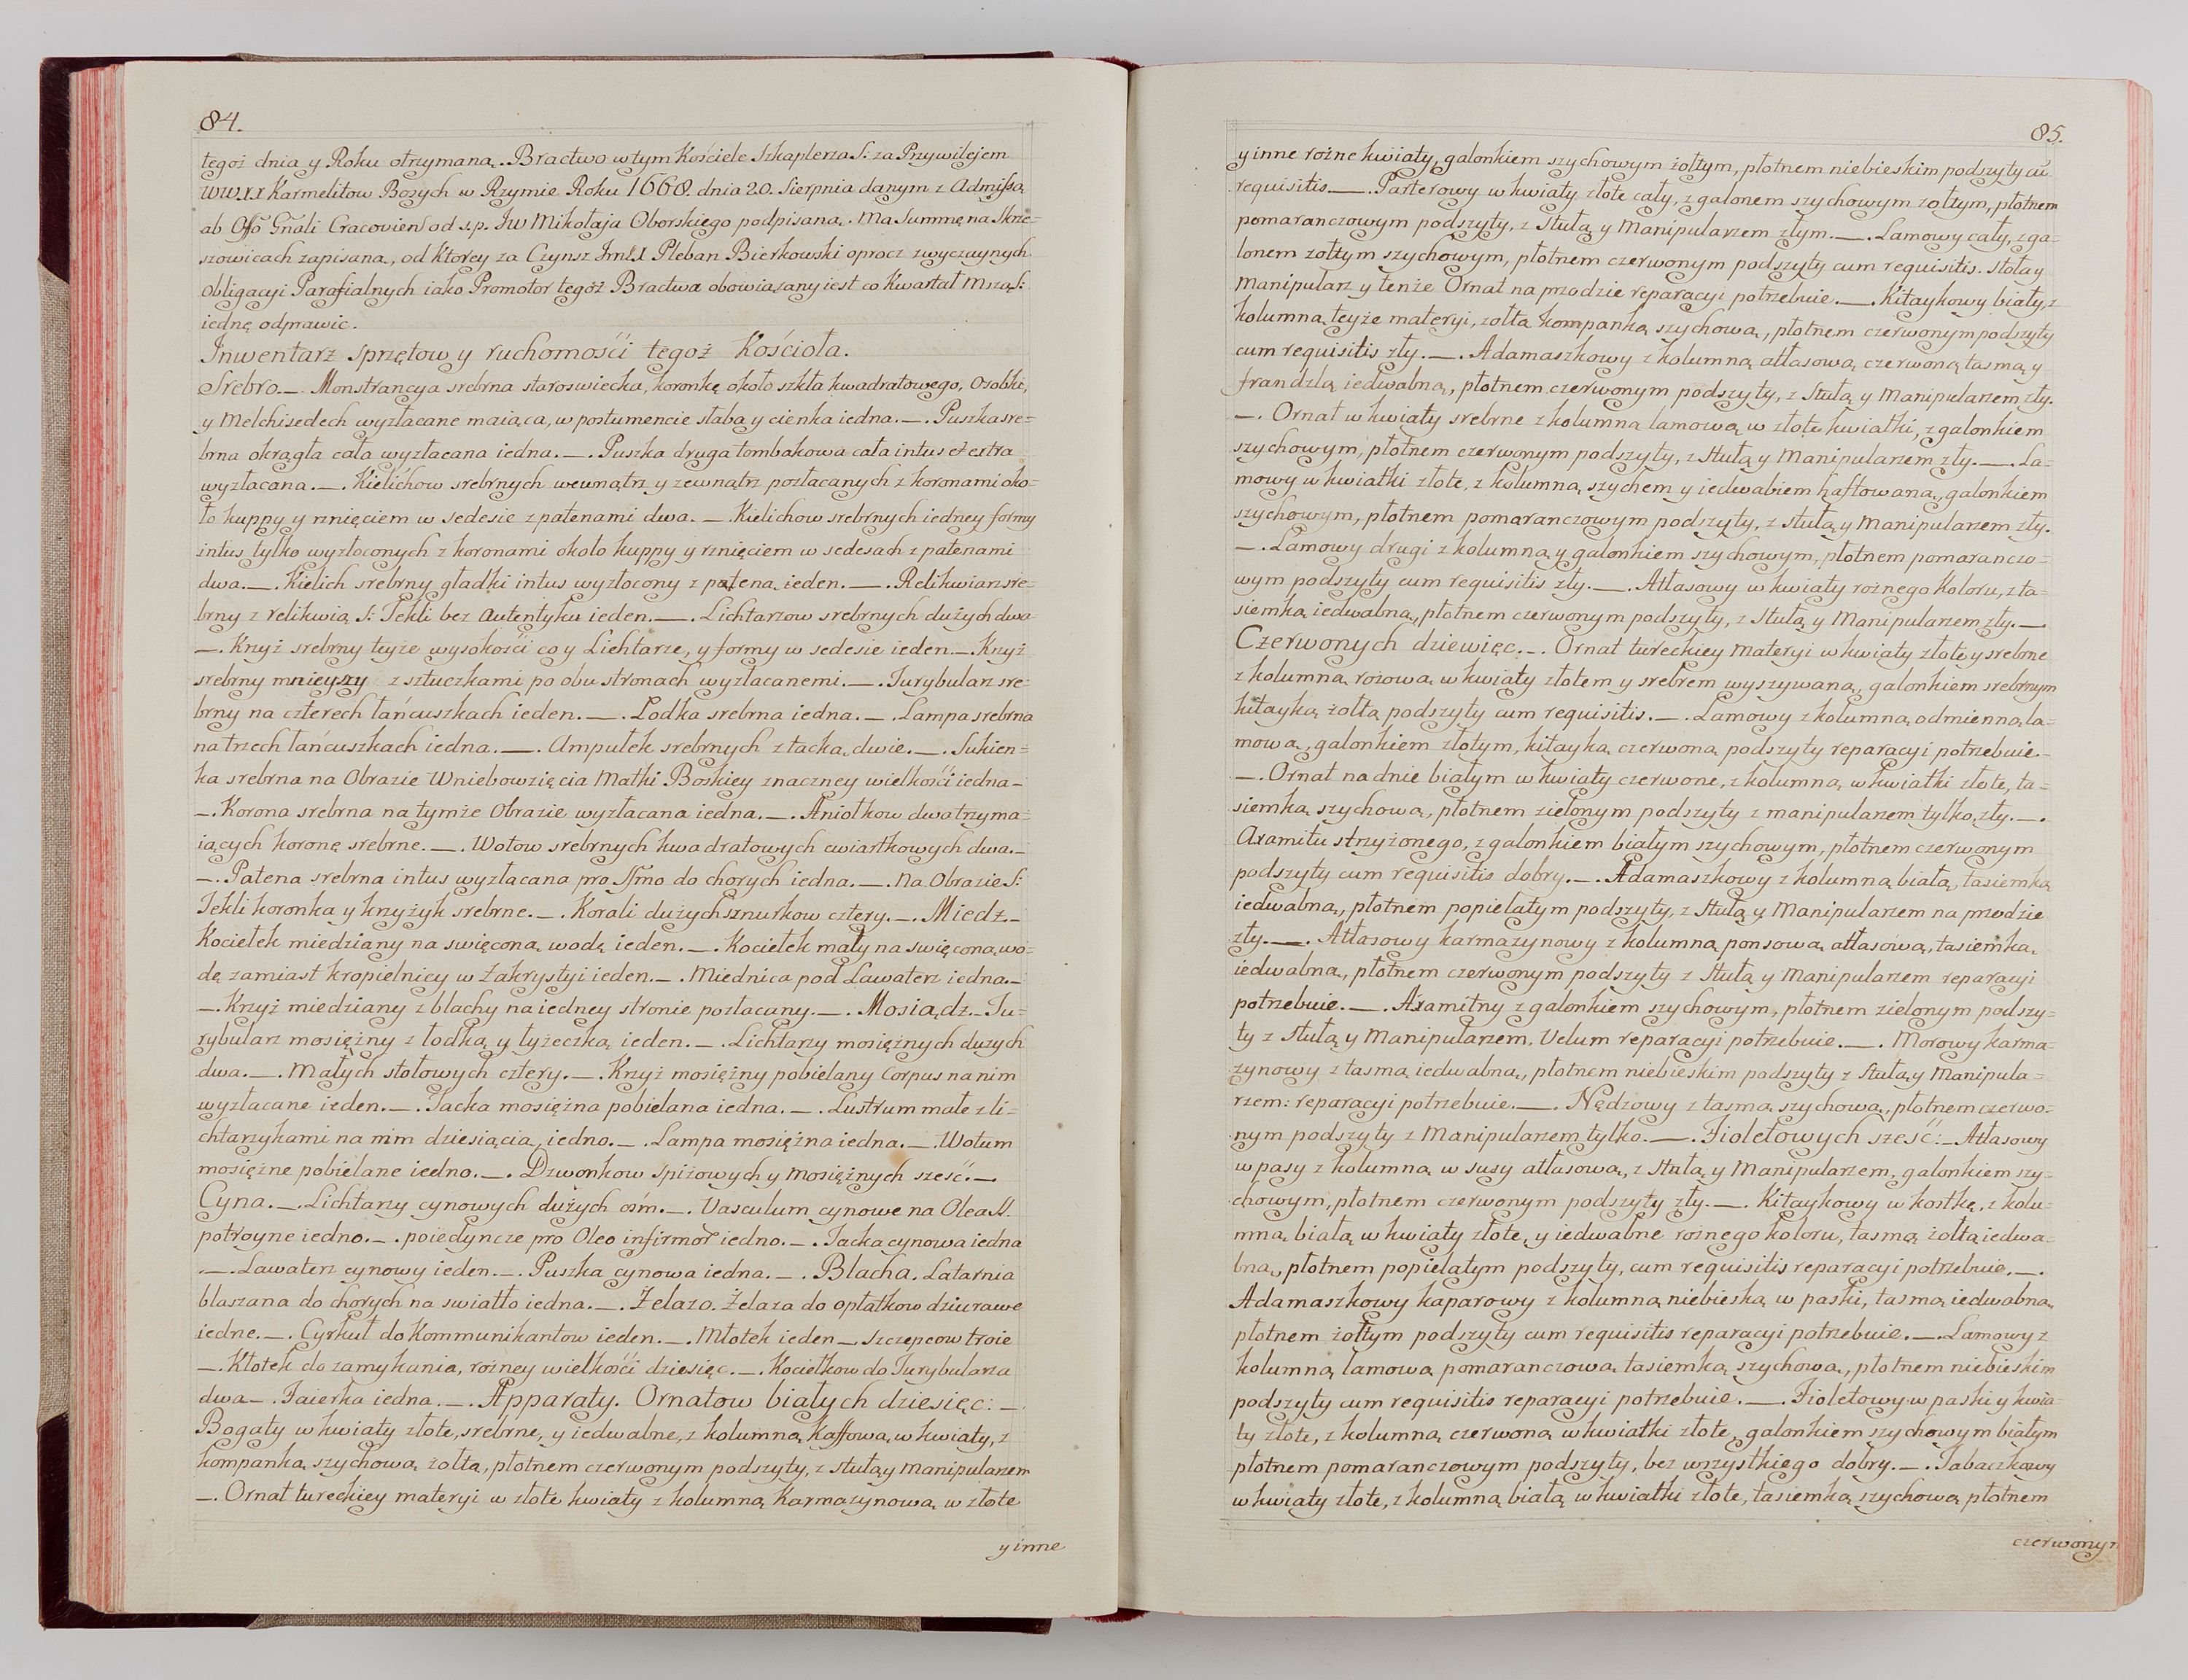 84.
tegoż dnia y Roku otrzymaną. Bractwo w tym Kościele Szkaplerza S: za Przywilejem
WW.XX Karmelitow Bosych w Rzymie Roku 1668. dnia 20. Sierpnia danym z Admissą
ab Offo Gnãli Cracovien od s.p. Jw Mikołaja Oborskiego podpisaną. Ma Summę na Skrze=
szowicach zapisaną, od Ktorey za Czynsz Pleban Bierkowski oprocz zwyczaynych
Obligacyi Parafialnych iako Promotor tegoż Bractwa obowiązany iest co Kwartał Mszą S:
iednę odprawic.
Jnwentarz sprzętow y ruchomośći tegoż Kościoła.
Srebro._. Monstrancya srebrna staroswiecka, koronkę około szkła kwadratowego, Osobki,
y Melchisedech wyzłacane maiąca, w postumencie słaba y cienka iedna._. Puszka sre=
brna okrągła cała wyzłacana iedna._. Puszka druga tombakowa cała intus et extra
wyzłacana._. Kielichow srebrnych wewnątrz y zewnątrz pozłacanych z koronami oko=
ło kuppy y rznięciem w sedesie z patenami dwa._. Kielichow srebrnych iedney formy
intus tylko wyzłoconych z koronami około kuppy y rznięciem w sedesach z patenami
dwa._. Kielich srebrny gładki intus wyzłocony z pateną ieden._. Relikwiarz sre=
brny z relikwią S: Tekli bez Autentyku ieden._. Lichtarzow srebrnych dużych dwa
_. Krzyż srebrny teyże wysokośći co y Lichtarze, y formy w sedesie ieden._. Krzyż
srebrny mnieyszy z sztuczkami po obu stronach wyzłacanemi._. Turybularz sre=
brny na czterech łańcuszkach ieden._. Łodka srebrna iedna._. Lampa srebrna
na trzech łańcuszkach iedna._. Ampułek srebrnych z tacką dwie._. Sukien=
ka srebrna na Obrazie Wniebowzięcia Matki Boskiey znaczney wielkośći iedna_
_. Korona srebrna na tymże Obrazie wyzłacana iedna._. Aniołkow dwa trzyma=
iących koronę srebrne._. Wotow srebrnych kwadratowych cwiartkowych dwa._
_. Patena srebrna intus wyzłacana pro Ssmo do chorych iedna._. Na Obrazie S:
Tekli koronka y krzyżyk srebrne._. Korali dużych sznurkow cztery._. Miedź._
Kociełek miedziany na swięconą wodę ieden._. Kociełek mały na swięconą wo=
dę zamiast kropielnicy w Zakrystyi ieden._. Miednica pod Lawaterz iedna._
_. Krzyż miedziany z blachy na iedney stronie pozłacany._. Mosiądz._ Tu=
rybularz mosiężny z łodką y łyżeczką ieden._. Lichtarzy mosiężnych dużych
dwa._. Małych stołowych cztery._. Krzyż mosiężny pobielany Corpus na nim
wyzłacane ieden._. Tacka mosiężna pobielana iedna._. Lustrum małe z li=
chtarzykami na nim dziesiącią, iedno._. Lampa mosiężna iedna._. Wotum
mosiężne pobielane iedno._. Dzwonkow spiżowych y mosiężnych sześć._
Cyna._. Lichtarzy cynowych dużych ośm._. Vasculum cynowe na Olea SS.
potroyne iedno._. poiedyncze pro Oleo infirmor iedno._. Tacka cynowa iedna
._. Lawaterz cynowy ieden._. Puszka cynowa iedna._. Blacha. Latarnia
blaszana do chorych na swiatło iedna._. Żelazo. Żelaza do opłatkow dziurawe
iedne._. Cyrkuł do Kommunikantow ieden._. Młotek ieden_. Szczepcow troie
_. Kłotek do zamykania, rożney wielkośći dziesięc._. Kociełkow do Turybularza
dwa_. Faierka iedna._. Apparaty. Ornatow białych dziesięc:_
Bogaty w kwiaty złote, srebrne, y iedwabne, z kolumną Kaffową w kwiaty, z
kompanką szychową żołtą, płotnem czerwonym podszyty, z stułą y Manipularzem
_. Ornat tureckiey materyi w złote kwiaty z kolumną Karmazynową w złote
y inne
85.
y inne rożne kwiaty, galonkiem szychowym żołtym, płotnem niebieskim podszyty cũ
requisitis._. Parterowy w kwiaty złote cały, z galonem szychowym żołtym, płotnem
pomaranczowym podszyty, z Stułą y Manipularzem złym._. Lamowy cały, z ga=
lonem żołtym szychowym, płotnem czerwonym podszyty cum requisitis. Stoła y
Manipularz y tenże Ornat na przodzie reparacyi potrzebuie._. Kitaykowy biały, z
kolumną teyże materyi, żołtą kompanką szychową, płotnem czerwonym podszyty
cum requisitis zły._. Adamaszkowy z kolumną atłasową czerwoną tasmą y
frandzlą iedwabną, płotnem czerwonym podszyty, z Stułą y Manipularzem zły.
_. Ornat w kwiaty srebrne z kolumną lamową w złote kwiatki, z galonkiem
szychowym, płotnem czerwonym podszyty, z Stułą y Manipularzem zły._. La=
mowy w kwiatki złote, z kolumną szychem y iedwabiem haftowaną, galonkiem
szychowym, płotnem pomaranczowym podszyty, z stułą y Manipularzem zły.
_. Lamowy drugi z kolumną y galonkiem szychowym, płotnem pomaranczo=
wym podszyty cum requisitis zły._. Atłasowy w kwiaty rożnego Koloru, z ta=
siemką iedwabną, płotnem czerwonym podszyty, z Stułą y Manipularzem zły._
Czerwonych dziewięc._. Ornat tureckiey Materyi w kwiaty złote y srebrne
z kolumną rożową w kwiaty złotem y srebrem wyszywaną, galonkiem srebrnym
kitayką żołtą podszyty cum requisitis._. Lamowy z kolumną odmienną la=
mową, galonkiem złotym, kitayką czerwoną podszyty reparacyi potrzebuie.
_. Ornat na dnie białym w kwiaty czerwone, z kolumną w kwiatki złote, ta=
siemką szychową, płotnem zielonym podszyty z manipularzem tylko, zły._.
Axamitu strzyżonego, z galonkiem białym szychowym, płotnem czerwonym
podszyty cum requisitis dobry._. Adamaszkowy z kolumną białą, tasiemką
iedwabną, płotnem popielatym podszyty, z Stułą y Manipularzem na przodzie
zły._. Atłasowy karmazynowy z kolumną ponsową atłasową, tasiemką
iedwabną, płotnem czerwonym podszyty z Stułą y Manipularzem reparacyi
potrzebuie._. Axamitny z galonkiem szychowym, płotnem zielonym podszy=
ty z Stułą y Manipularzem. Velum reparacyi potrzebuie._. Morowy karma=
zynowy z tasmą iedwabną, płotnem niebieskim podszyty z Stułą y Manipula=
rzem: reparacyi potrzebuie._. Nędzowy z tasmą szychową, płotnem czerwo=
nym podszyty z Manipularzem tylko._. Fioletowych sześć:_ Atłasowy
w pasy z kolumną w susy atłasową, z Stułą y Manipularzem, galonkiem szy=
chowym, płotnem czerwonym podszyty zły._. Kitaykowy w kostkę, z kolu=
mną białą w kwiaty złote, y iedwabne rożnego koloru, tasmą żołtą iedwa=
bną, płotnem popielatym podszyty, cum requisitis reparacyi potrzebuie._.
Adamaszkowy kaparowy z kolumną niebieską w paski, tasmą iedwabną,
płotnem żołtym podszyty cum requisitis reparacyi potrzebuie._. Lamowy z
kolumną lamową pomaranczową tasiemką szychową, płotnem niebieskim
podszyty cum requisitis reparacyi potrzebuie._. Fioletowy w paski y kwia=
ty złote, z kolumną czerwoną w kwiatki złote, galonkiem szychowym białym
płotnem pomaranczowym podszyty, bez wszystkiego dobry._. Tabaczkowy
w kwiaty złote, z kolumną białą w kwiatki złote, tasiemką szychową płotnem
czerwonym